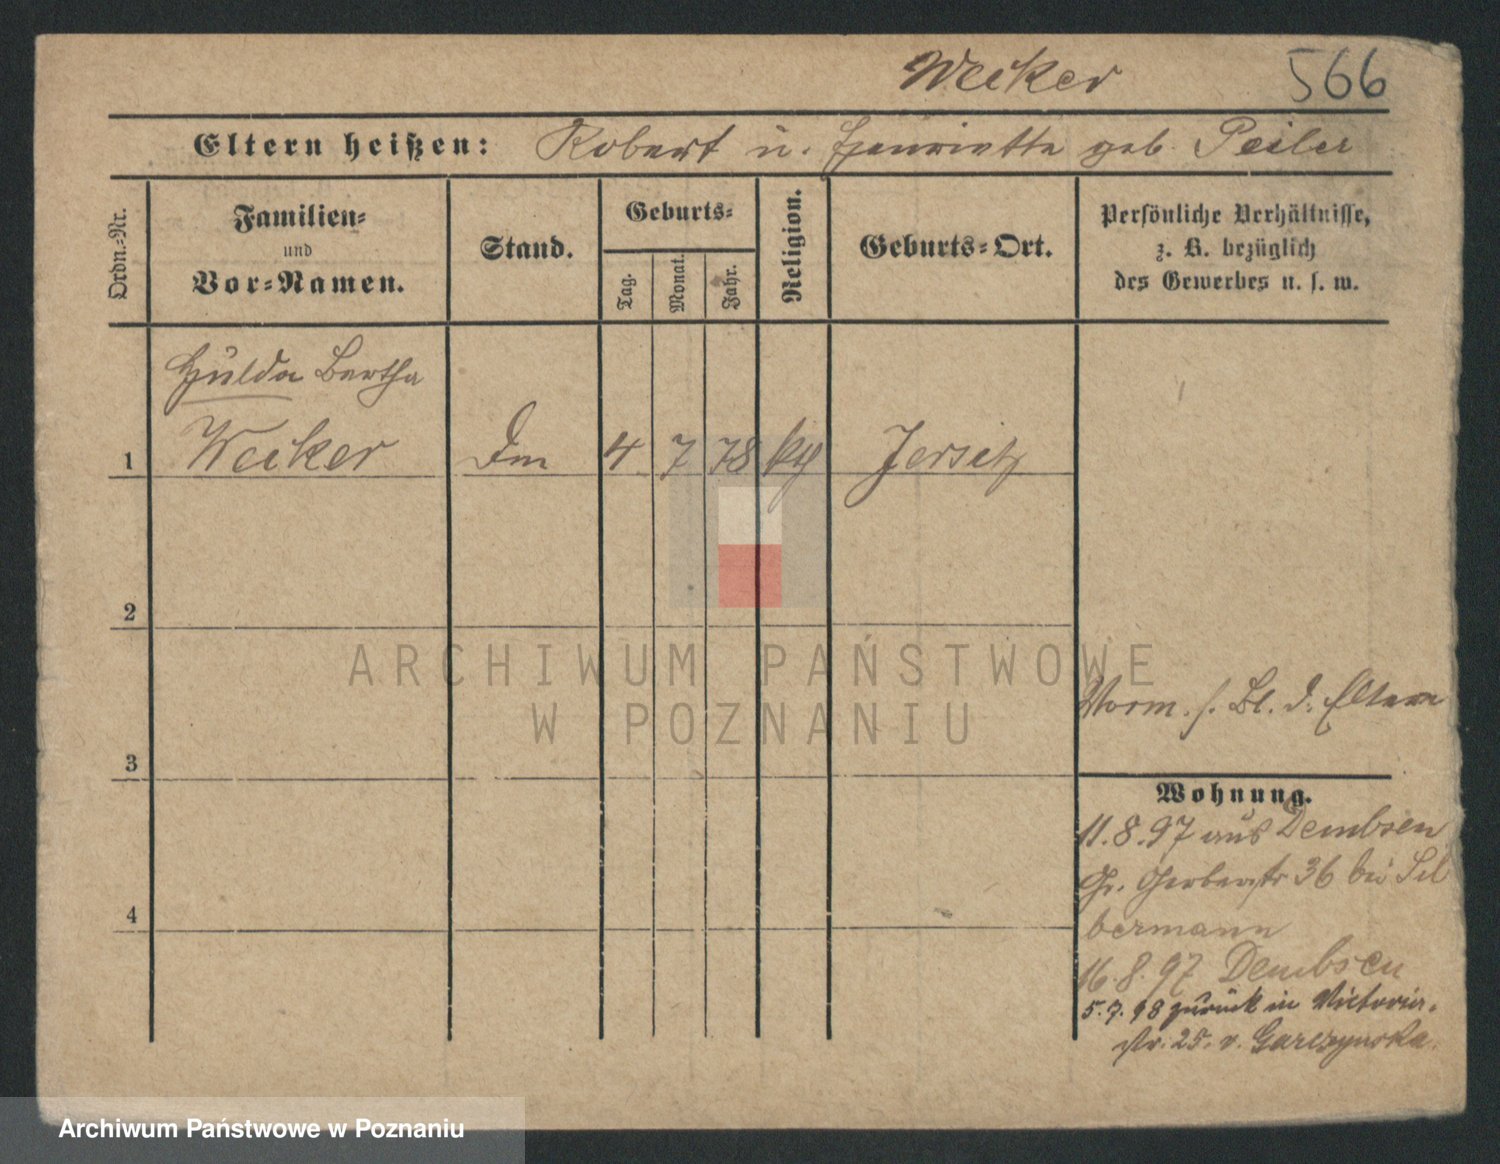 Weiker 566
Eltern heißen: Robert u. Henriette geb. Peiler
Ordn.-Nr.
Familien-
und
Vor-Namen.
Stand.
Geburts-
Tag.
Monat.
Jahr.
Religion.
Geburts-Ort.
Persönliche Verhältnisse,
z. B. bezüglich
des Gewerbes u. s. w.
Hulda Bertha
1 Weiker 4 7 78 Jersitz
2
3
4
ARCHIWUM PAŃSTWOWE
W POZNANIU
Vorm. s. Bl. d. Eltern
Wohnung.
11.8.97 aus Dembsen
Gr. Gerberstr 36 bei Sil
bermann
16.8.97 Dembsen
5.7.98 zurück in Victoria-
str. 25. v. Garczynska.
Archiwum Państwowe w Poznaniu